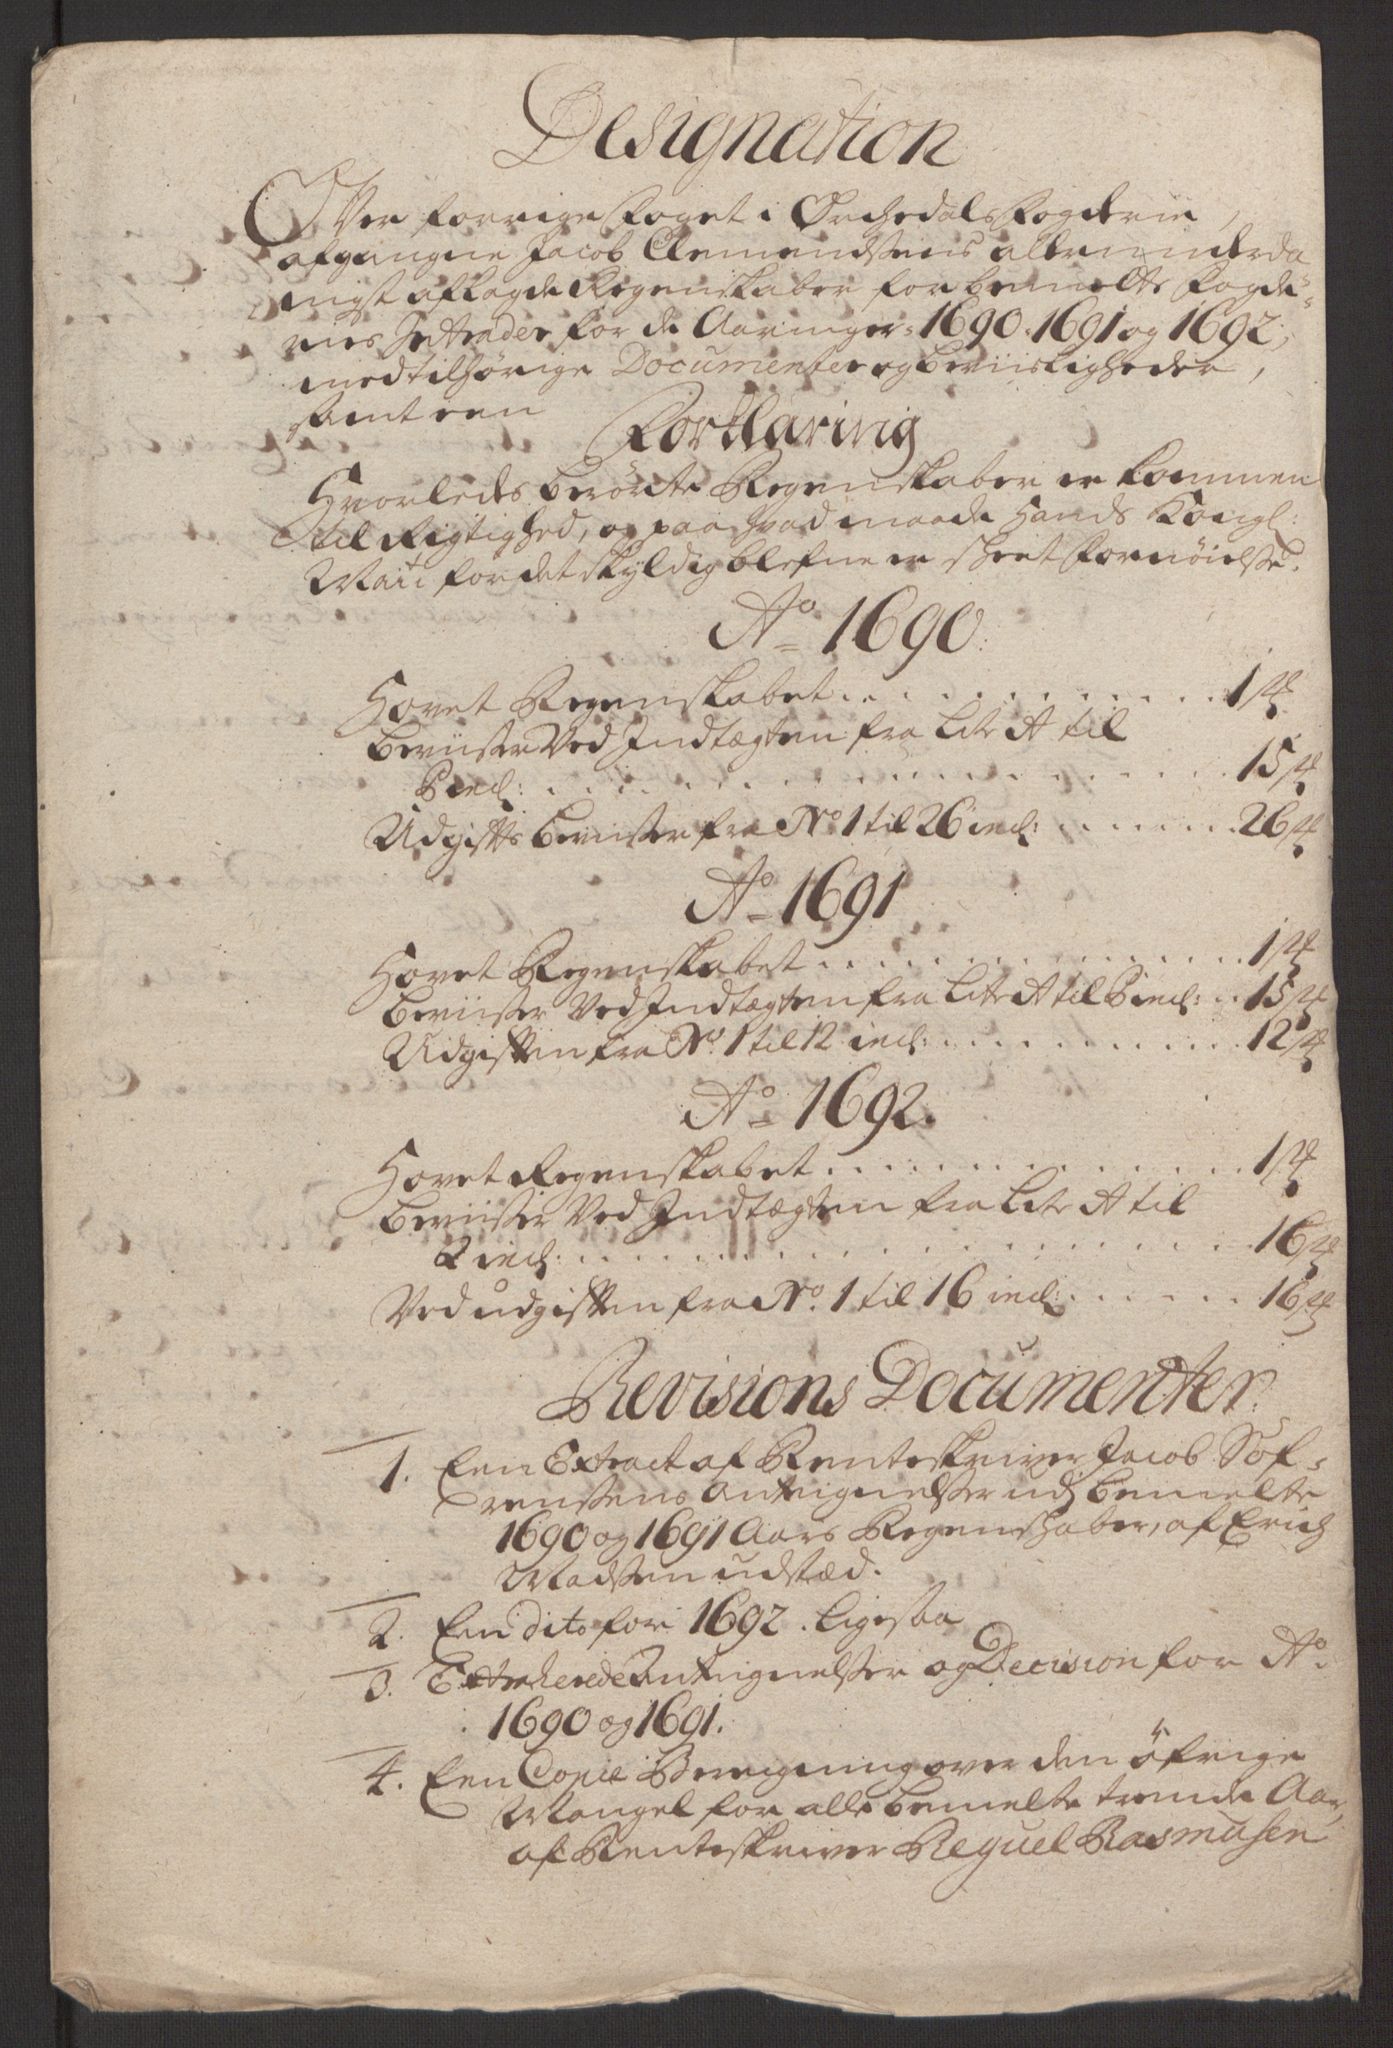 Designation
Over forrige Foget i Ørchedals Fogderie,
afgangne Jacob Clemendsens allerunderda
nigst aflagde Regenskaber for bemelte Fogde¬
ries Intrader for de Aaringer 1690. 1691 og 1692,
med tilhørige Documenter og beviisligheder,
samt een
Forklaring
Hvorleds berørte Regenskaber er kommen
til Rigtighed, og paa hvad maade Hands Kongl:
Maitt for det skyldig blefne er skeet fornøielse.
Ao 1690.
Hovet Regenskabet . . . . . . . . . . 1 st
beviiser Ved Indtægten fra Litr A til
P incl: . . . . . . . . . . 15 st
Udgifts beviiser fra No 1 til 26 incl: . . . . . . 26 st
Ao 1691
Hovet Regenskabet . . . . . . . . . . 1 st
beviiser Ved Indtægten fra Litr A til P incl: . . 15 st
Udgiften fra No. 1 til 12 incl: . . . . . . . . 12 st
Ao 1692.
Hovet Regenskabet . . . . . . . . . . 1 st
beviiser Ved Indtægten fra Litr A til
Q incl: . . . . . . . . . . 16 st
Ved udgiften fra No. 1 til 16 incl: . . . . . . 16 st
Revisions Documenter.
1. Een Extract af Renteskriver Jacob Søf¬
rensens antegnelser ud bemelte
1690 og 1691 Aars Regenskaber, af Erich
Madsen udstæd.
2. Een dito for 1692. ligesaa
3. Extraherede Antegnelser og Decision for Ao.
1690 og 1691.
4. Een Copie Beregning over den öfrige
Mangel for alle bemelte trende Aar,
af Renteskriver Reguel Rasmusen